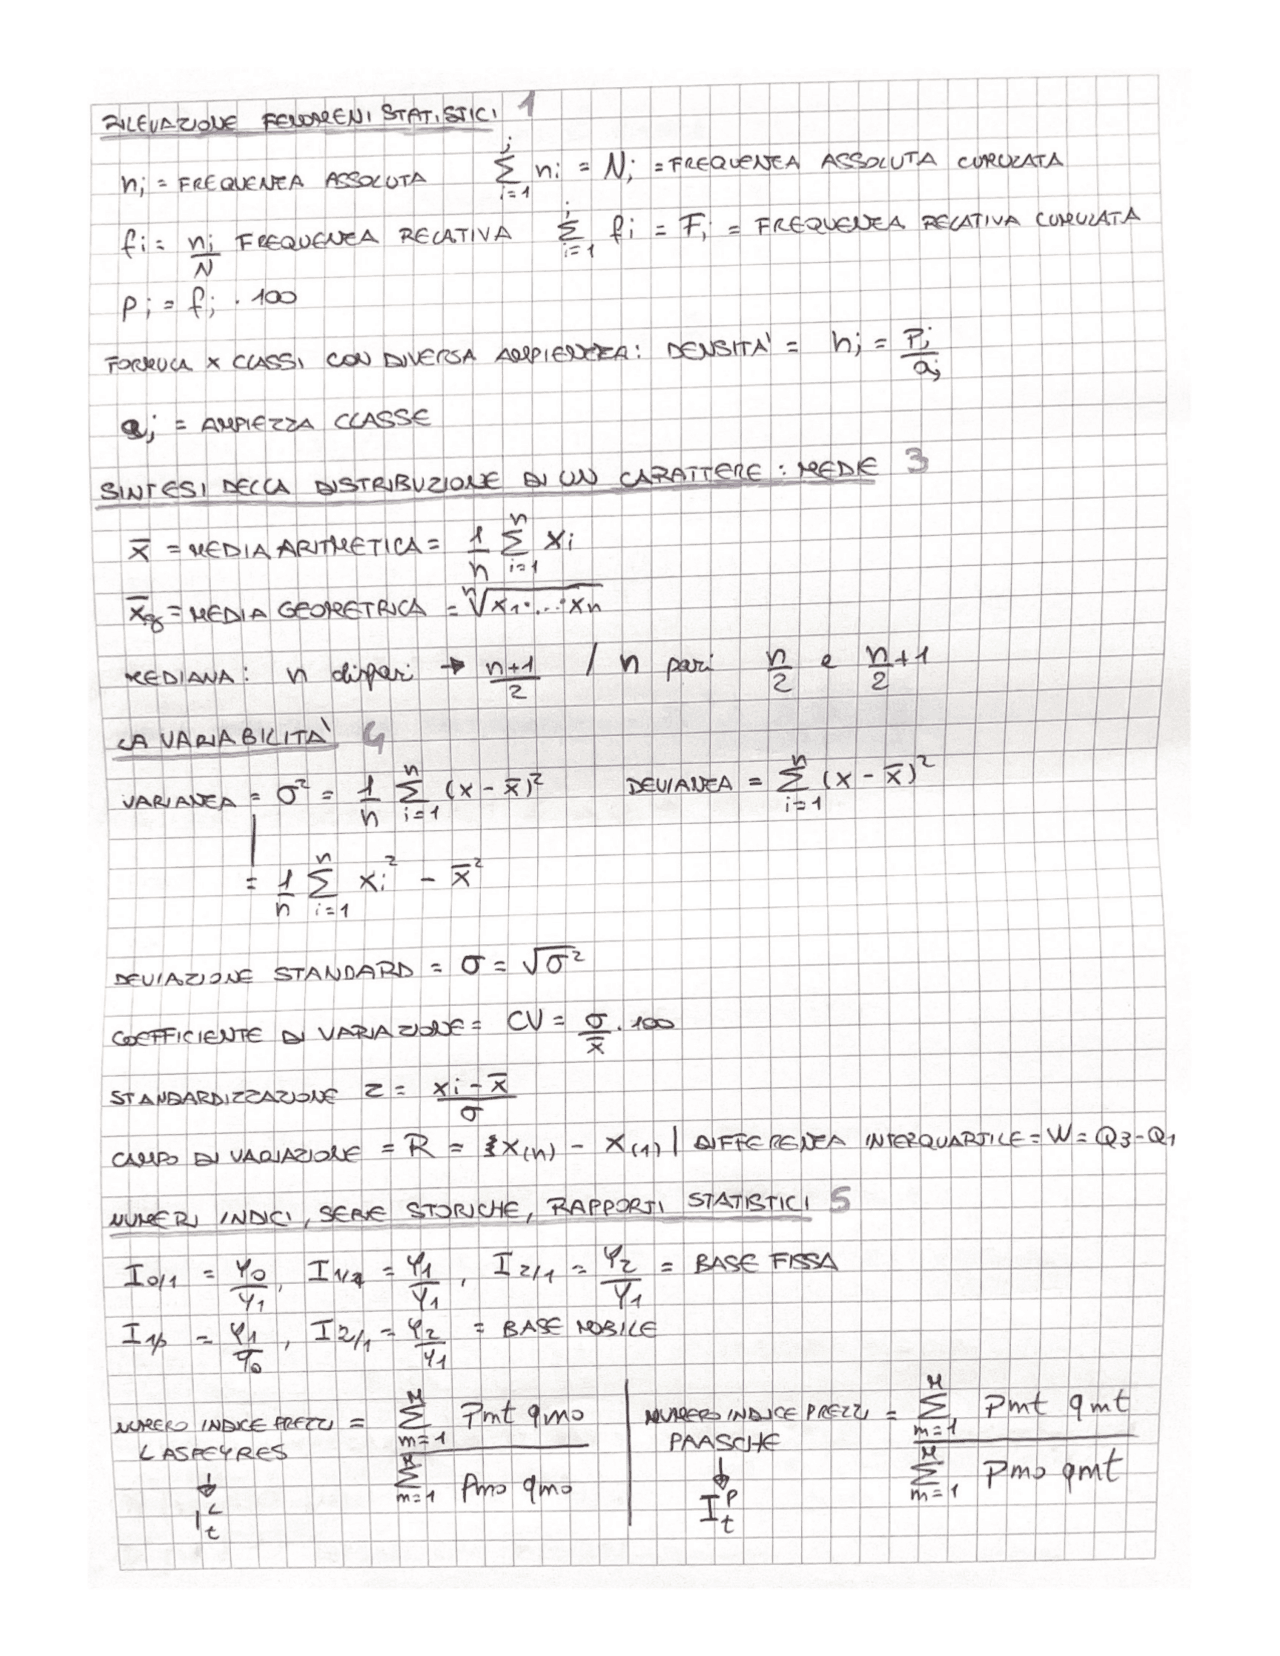 RILEVAZIONE FENOMENI STATISTICI 1
nj = FREQUENZA ASSOLUTA   j Σ i=1 ni = Nj = FREQUENZA ASSOLUTA CUMULATA
fi = nj/N FREQUENZA RELATIVA   j Σ i=1 fi = Fj = FREQUENZA RELATIVA CUMULATA
pj = fj · 100
FORMULA X CLASSI CON DIVERSA AMPIEZZA: DENSITÀ = hj = Pj/aj
aj = AMPIEZZA CLASSE
SINTESI DELLA DISTRIBUZIONE DI UN CARATTERE: MEDIE 3
x̄ = MEDIA ARITMETICA = 1/n n Σ i=1 xi
x̄g = MEDIA GEOMETRICA = ⁿ√x1·...·xn
MEDIANA: n dispari → n+1/2 / n pari n/2 e n/2+1
LA VARIABILITÀ 4
VARIANZA = σ² = 1/n n Σ i=1 (x - x̄)²   DEVIANZA = n Σ i=1 (x - x̄)²
= 1/n n Σ i=1 xi² - x̄²
DEVIAZIONE STANDARD = σ = √σ²
COEFFICIENTE DI VARIAZIONE = CV = σ/x̄ · 100
STANDARDIZZAZIONE z = xi - x̄/σ
CAMPO DI VARIAZIONE = R = x(n) - x(1) | DIFFERENZA INTERQUARTILE = W = Q3-Q1
NUMERI INDICI, SERIE STORICHE, RAPPORTI STATISTICI 5
I0/1 = Y0/Y1, I1/1 = Y1/Y1, I2/1 = Y2/Y1 = BASE FISSA
I1/0 = Y1/Y0, I2/1 = Y2/Y1 = BASE MOBILE
NUMERO INDICE PREZZI LASPEYRES = M Σ m=1 Pmt qmo / M Σ m=1 Pmo qmo
↓
I L t
NUMERO INDICE PREZZI PAASCHE = M Σ m=1 Pmt qmt / M Σ m=1 Pmo qmt
↓
I P t